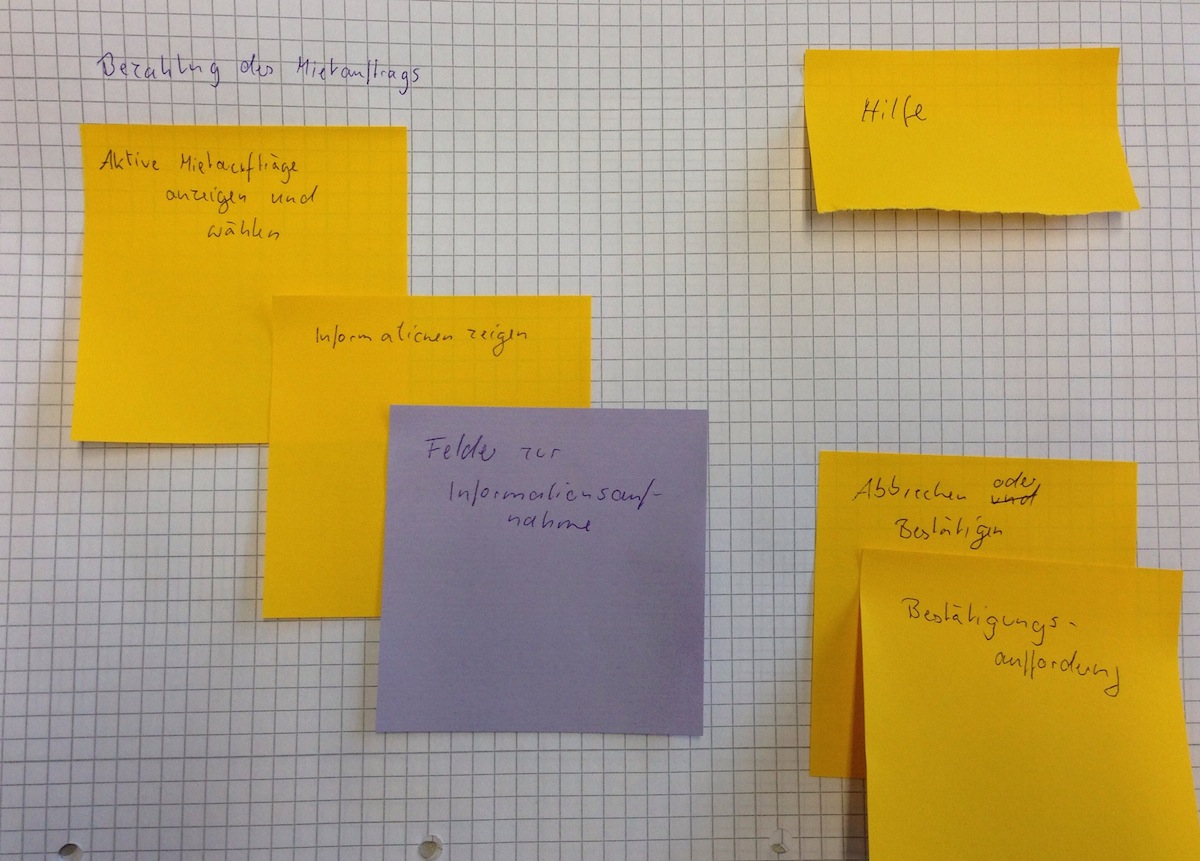 Bezahlung des Mietauftrags
Hilfe
Aktive Mietaufträge
anzeigen und
wählen
Informationen zeigen
Felder zur
Informationsauf-
nahme
Abbrechen oder und
Bestätigen
Bestätigungs-
aufforderung